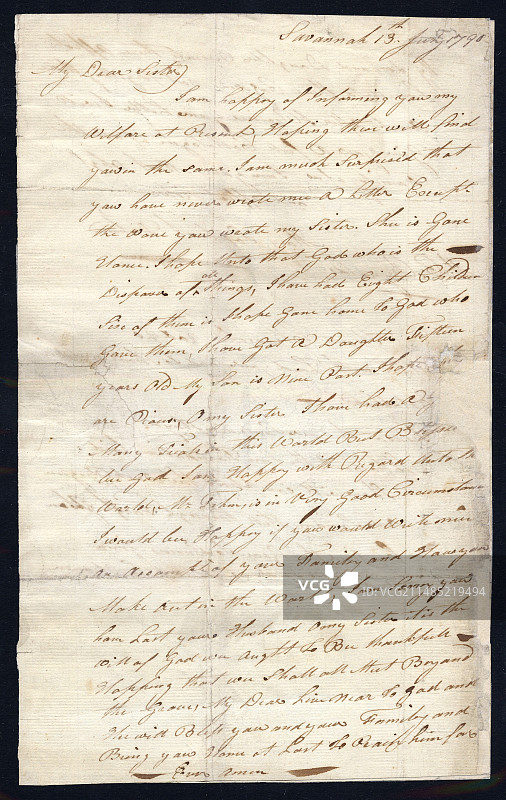 Savannah 13th July 1790
My Dear Sister
I am happy of Informing you my
Welfare at Present, Hoping these will find
you in the same. I am much Surprised that
you have never wrote me A Letter Except
the wone you wrote my Sister. She is Gone
Home. I hope Unto that God who is the
Disposer of all Things, I have had Eight Children
Six of them is I hope Gone home to God who
Gave them, I have Got A Daughter Fifteen
years old My Son is Nine Past. I hope
are Pious, O my Sister I have had A
Many Trials in this World But Blessed
be God I am Happy with Regard Unto the
World, Mr is in Very Good Circumstance
I would be Happy if you would Write me
an Account of your Family and How you
Make out in the War I am Sorry you
have Lost your Husband O my Sister it is the
Will of God we Ought to Bee thankfull
Hopping that we Shall all Meet Beyond
the Grave, My Dear Live Near To God and
He will Bless you and your Family and
Bring you Home at Last To Praise him for
Ever Amen
VCG
VCG.COM
ID:VCG211485219494